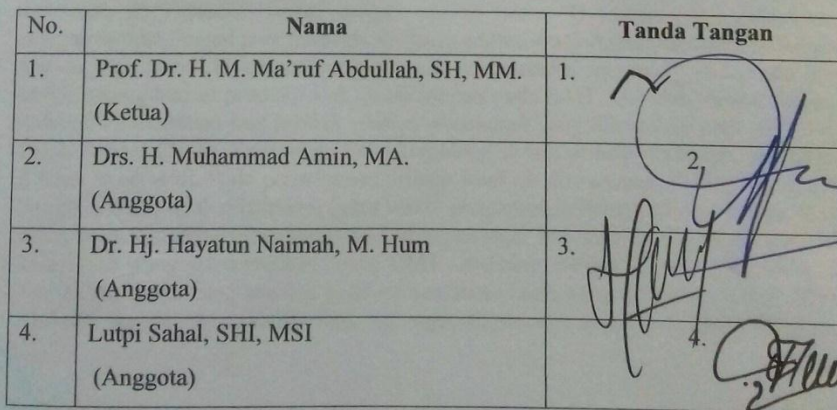 No. Nama Tanda Tangan
1. Prof. Dr. H. M. Ma'ruf Abdullah, SH, MM. 1.
(Ketua)
2. Drs. H. Muhammad Amin, MA. 2,
(Anggota)
3. Dr. Hj. Hayatun Naimah, M. Hum 3.
(Anggota)
4. Lutpi Sahal, SHI, MSI 4.
(Anggota)